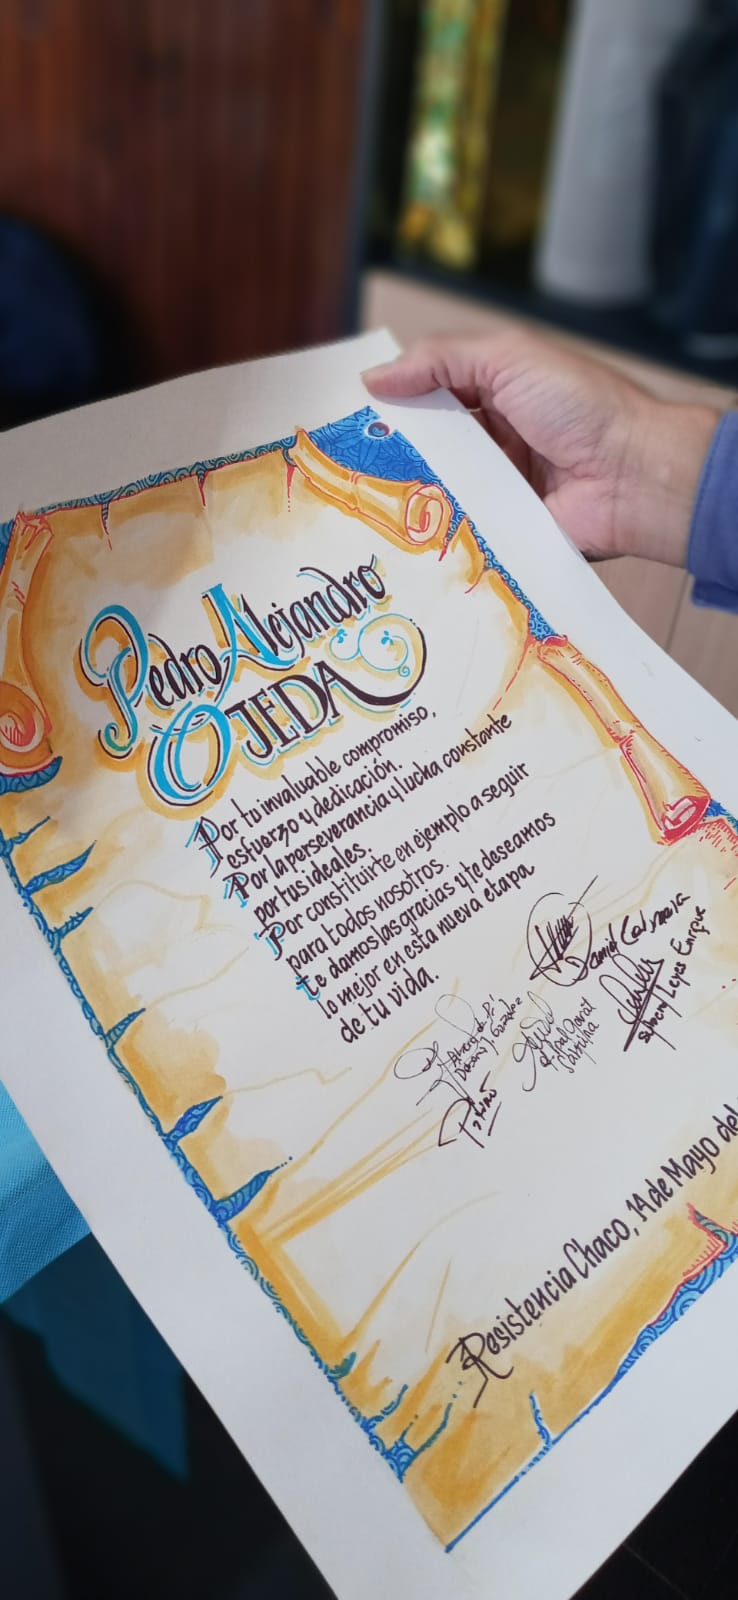 Pedro Alejandro
OJEDA
Por tu invaluable compromiso,
esfuerzo y dedicación.
Por la perseverancia y lucha constante
por tus ideales.
Por constituirte en ejemplo a seguir
para todos nosotros.
te damos las gracias y te deseamos
lo mejor en esta nueva etapa
de tu vida.
Daniel
Leyes Enrique
Resistencia Chaco, 14 de Mayo del